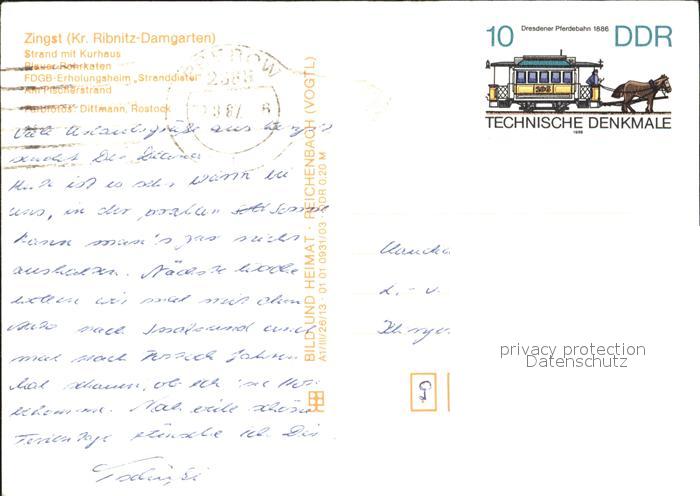 Zingst (Kr. Ribnitz-Damgarten)
Strand mit Kurhaus
Blauer Rohrkaten
FDGB-Erholungsheim „Stranddistel"
Am Fischerstrand
Dittmann, Rostock
Viele Urlaubsgrüße aus
sendet Dir
Heute ist es sehr warm bei
uns, in der prallen Sonne
kann man's gar nicht
aushalten. Nächste Woche
wollen wir mal mit dem
Auto nach Stralsund und
mal nach fahren.
Mal schauen, ob ich
bekomme. Noch viele schöne
Ferientage wünsche ich Dir
BILD UND HEIMAT · REICHENBACH (VOGTL)
A1/III/26/13 · 01 01 0931/03 DDR 0,20 M
Dresdener Pferdebahn 1886
10 DDR
TECHNISCHE DENKMALE
1986
Claudia
privacy protection
Datenschutz